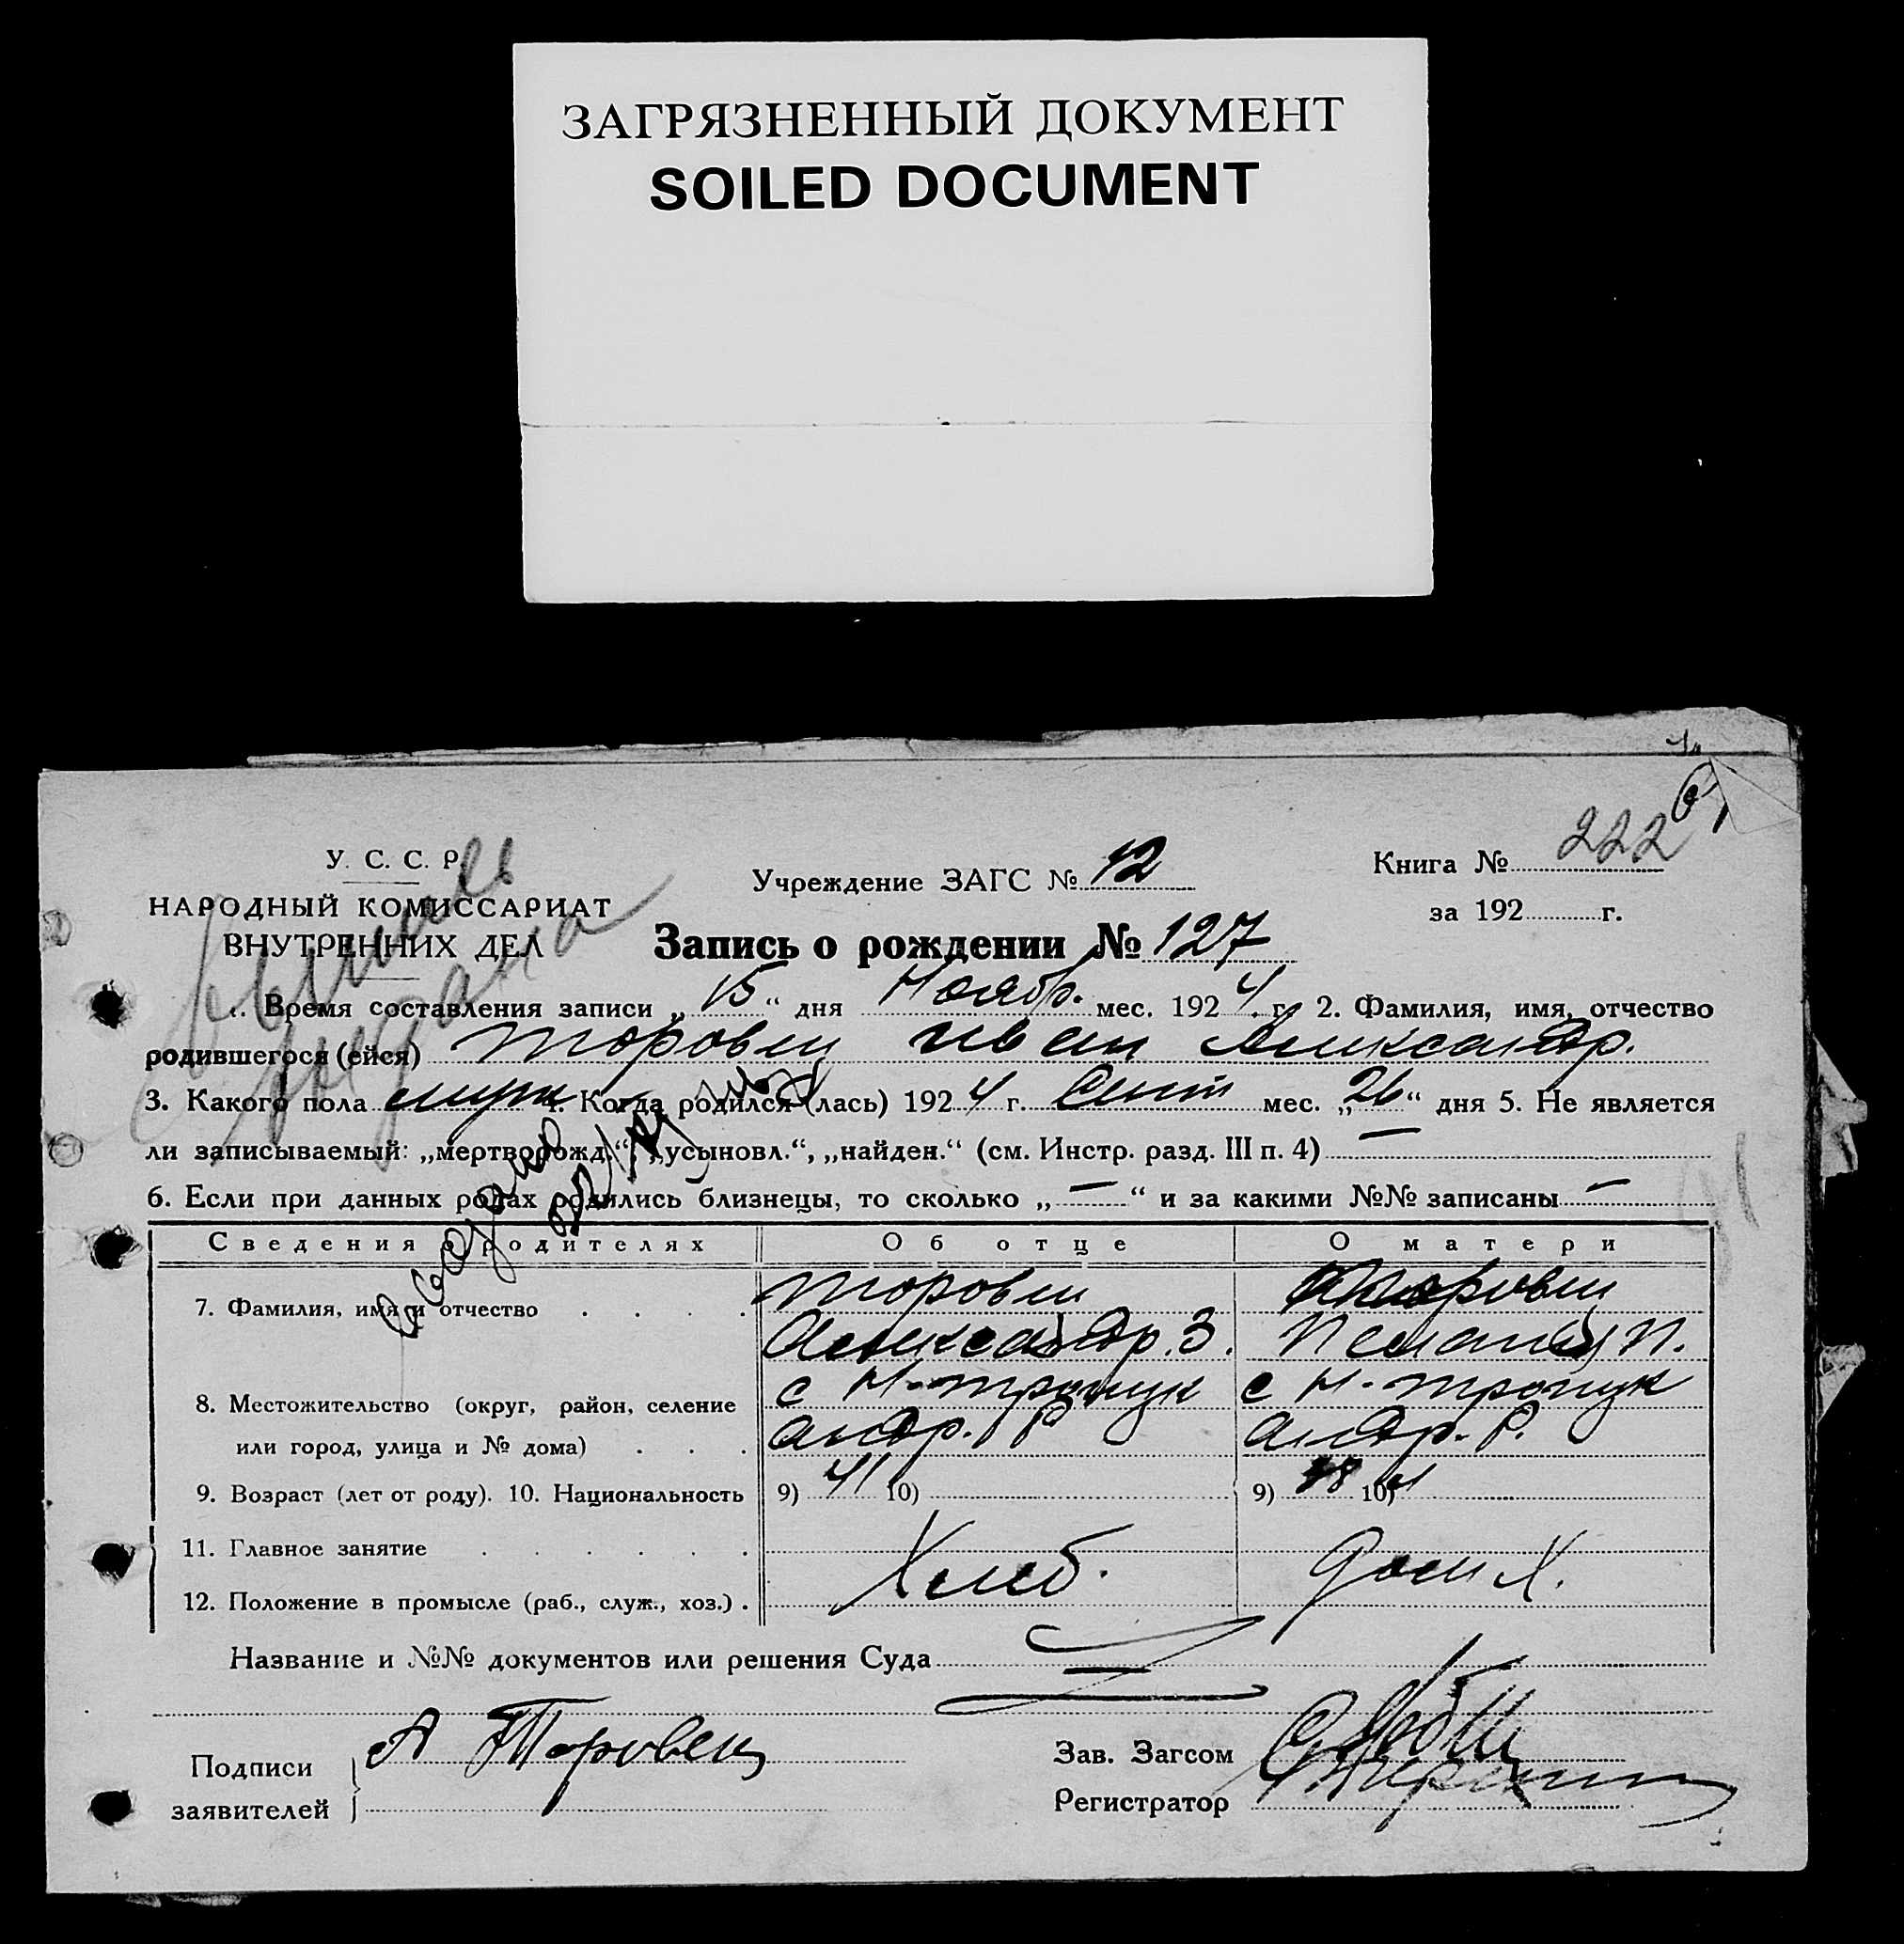 ЗАГРЯЗНЕННЫЙ ДОКУМЕНТ
SOILED DOCUMENT
222
У. С. С. Р.
НАРОДНЫЙ КОМИССАРИАТ
ВНУТРЕННИХ ДЕЛ
Учреждение ЗАГС № 12
Книга №
за 192 г.
Запись о рождении № 127
1. Время составления записи „15“ дня Ноябр. мес. 1924 г. 2. Фамилия, имя, отчество
родившегося (ейся) Торовец Иван Александр.
3. Какого пола муж 4. Когда родился (лась) 1924 г. Сент мес. „26“ дня 5. Не является
ли записываемый: „мертворожд.“, „усыновл.“, „найден.“ (см. Инстр. разд. III п. 4) —
6. Если при данных родах родились близнецы, то сколько „—“ и за какими №№ записаны —
Сведения о родителях Об отце О матери
7. Фамилия, имя и отчество Торовец Торовец
Александр. З. П.
8. Местожительство (округ, район, селение с Н- с Н-
или город, улица и № дома) Андр. Р Андр. Р.
9. Возраст (лет от роду). 10. Национальность 9) 41 10) 9) 38 10)
11. Главное занятие
Хлеб. Дом Х.
12. Положение в промысле (раб., служ., хоз.)
Название и №№ документов или решения Суда
Подписи заявителей А Торовец
Зав. Загсом
Регистратор